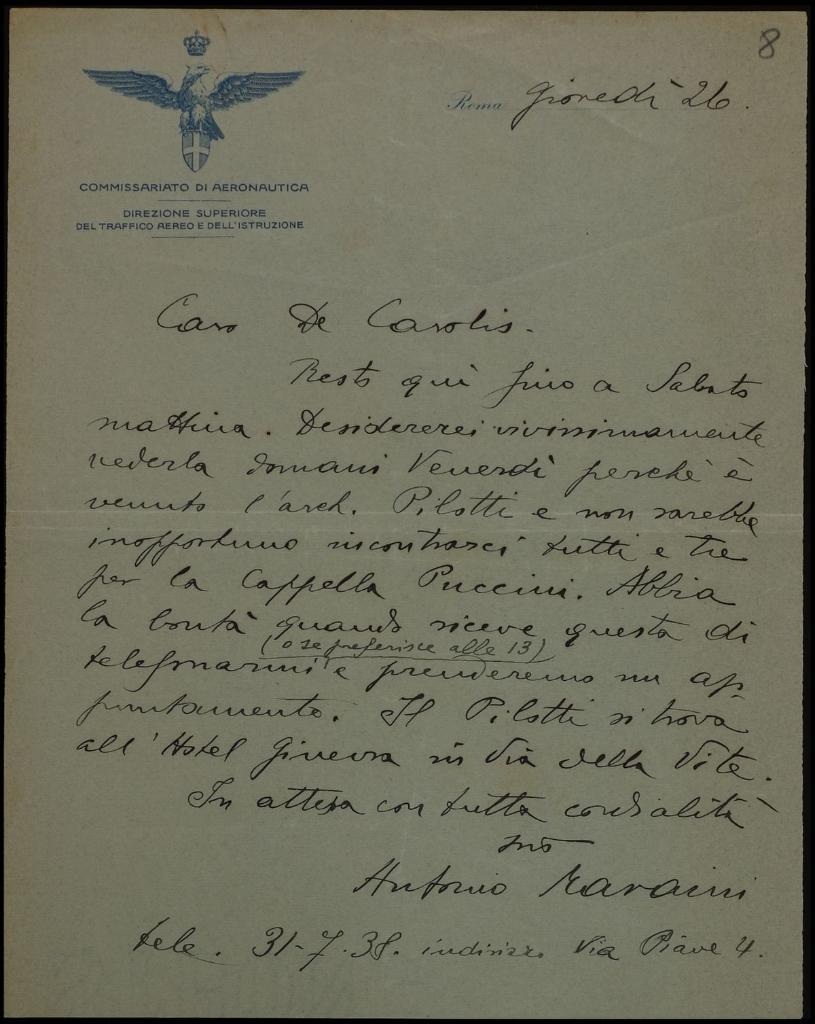 8
Roma Giovedì 26.
COMMISSARIATO DI AERONAUTICA
DIREZIONE SUPERIORE
DEL TRAFFICO AEREO E DELL'ISTRUZIONE
Caro De Carolis.
Resto qui fino a Sabato
mattina. Desidererei vivissimamente
vederla domani Venerdì perché è
venuto l'arch. Pilotti e non sarebbe
inopportuno incontrarci tutti e tre
per la Cappella Puccini. Abbia
la bontà quando riceve questa di
(o se preferisce alle 13)
telefonarmi e prenderemo un ap-
puntamento. Il Pilotti si trova
all'Hotel Ginevra in Via della Vite.
In attesa con tutta cordialità
suo
Antonio Maraini
tele. 31-7-38. indirizzo Via Piave 4.